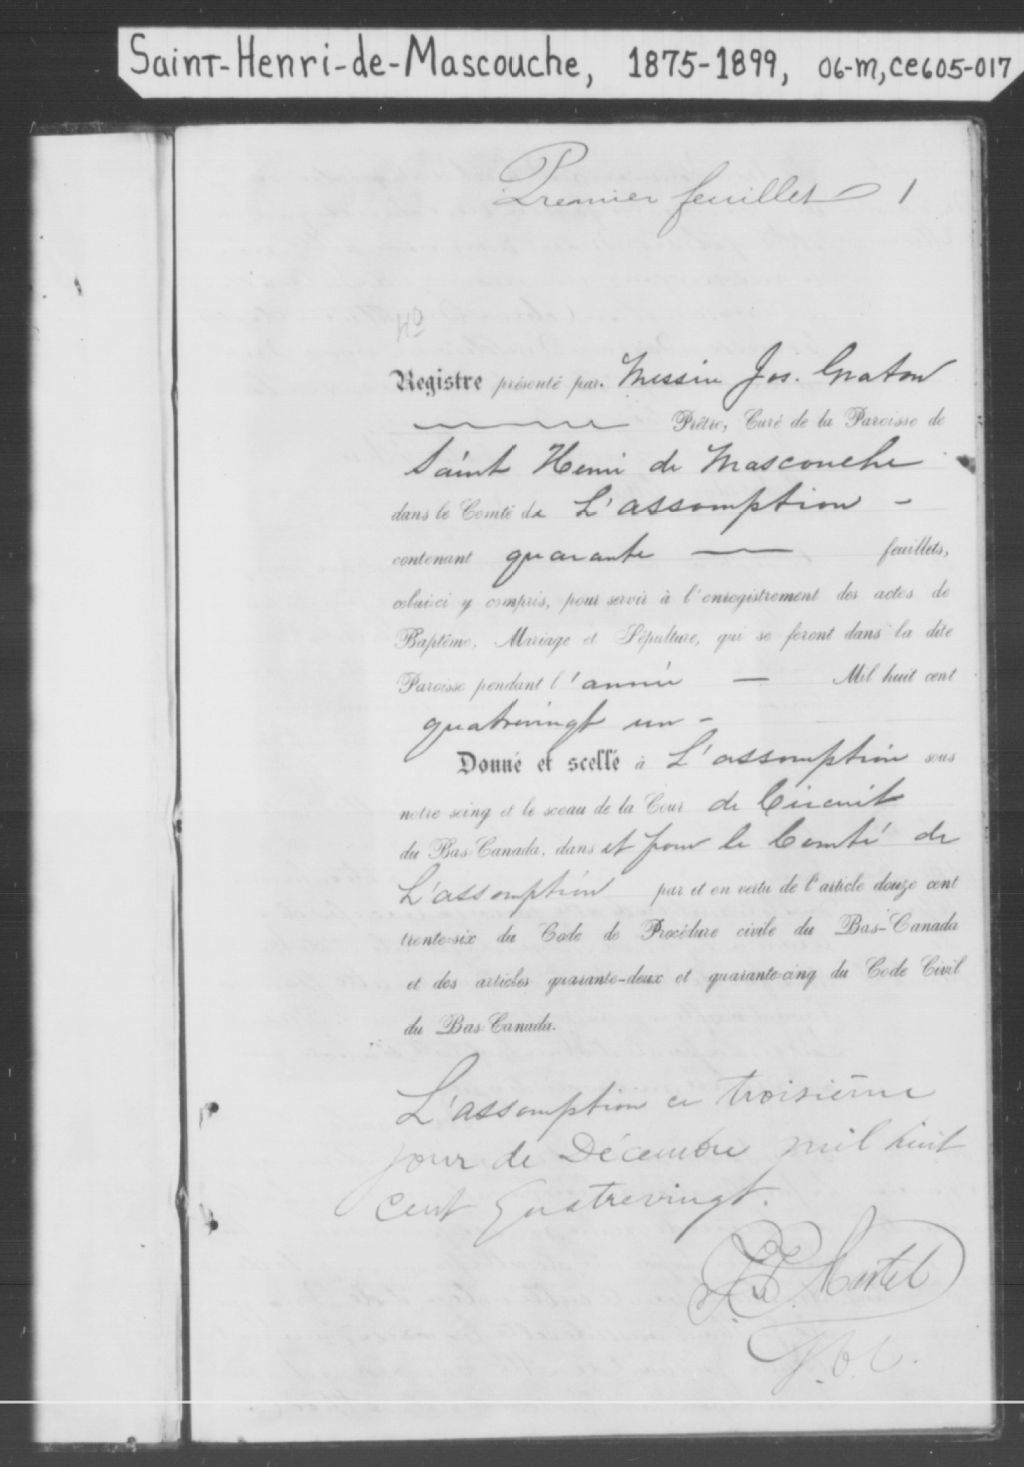 Saint-Henri-de-Mascouche, 1875-1899, 06-m, ce605-017
Premier feuillet 1
Registre présenté par Messire Jos. Graton
Prêtre, Curé de la Paroisse de
Saint Henri de Mascouche
dans le Comté de L'assomption -
contenant quarante — feuillets,
celui-ci y compris, pour servir à l'enregistrement des actes de
Baptême, Mariage et Sépulture, qui se feront dans la dite
Paroisse pendant l'année — Mil huit cent
quatrevingt un -
Donné et scellé à L'assomption sous
notre seing et le sceau de la Cour de Circuit
du Bas-Canada, dans et pour le Comté de
L'assomption par et en vertu de l'article douze cent
trente-six du Code de Procédure civile du Bas-Canada
et des articles quarante-deux et quarante-cinq du Code Civil
du Bas-Canada.
L'assomption ce troisième
jour de Décembre mil huit
cent Quatrevingt.
Martel